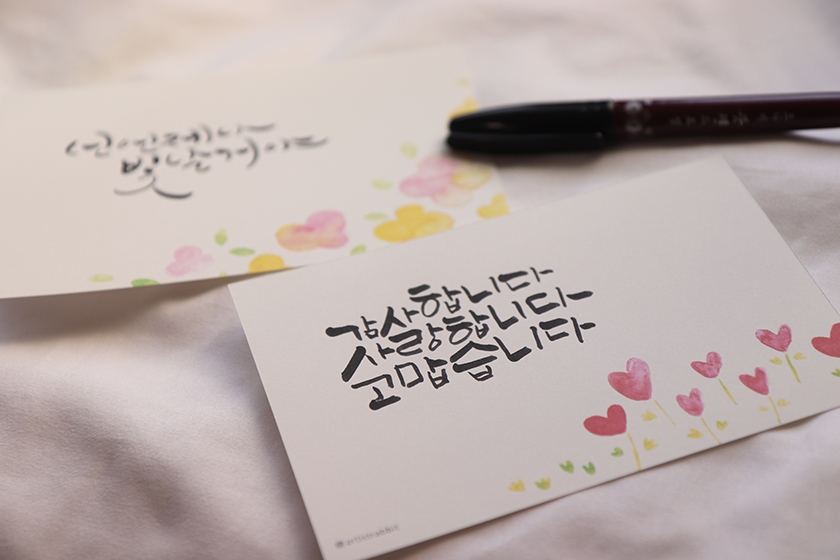 넌 언제나
빛날거야
감사합니다
사랑합니다
고맙습니다